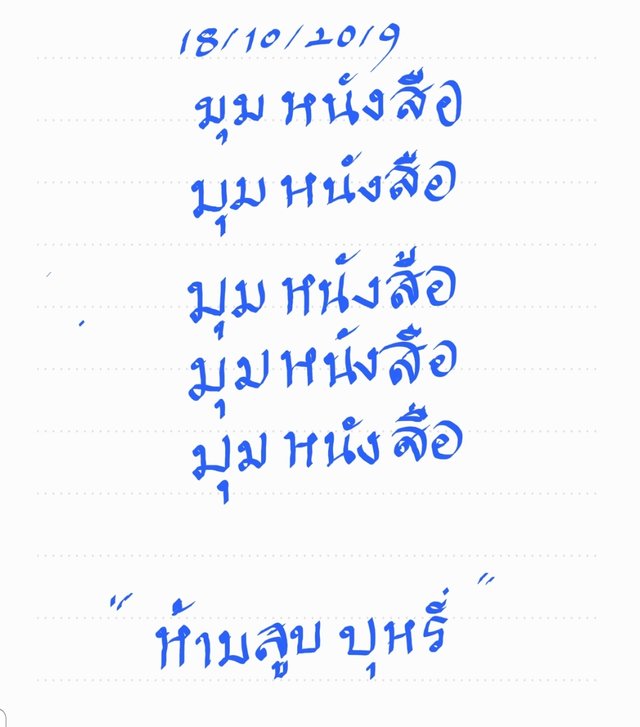 18/10/2019
มุม หนังสือ
มุม หนังสือ
มุม หนังสือ
มุม หนังสือ
มุม หนังสือ
" ห้ามสูบ บุหรี่ "